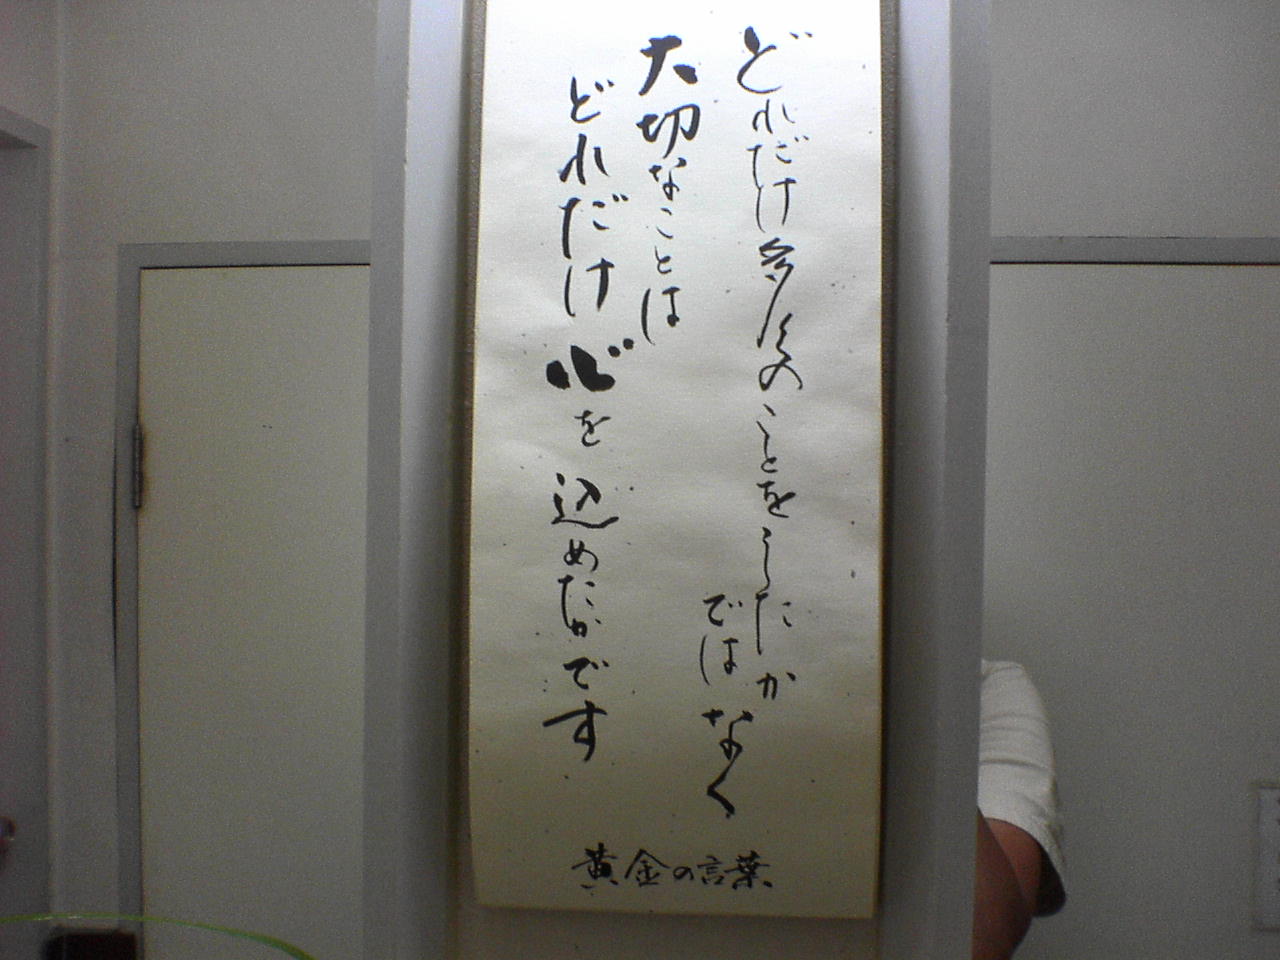 どれだけ多くのことをしたか
ではなく
大切なことは
どれだけ心を込めたかです
黄金の言葉